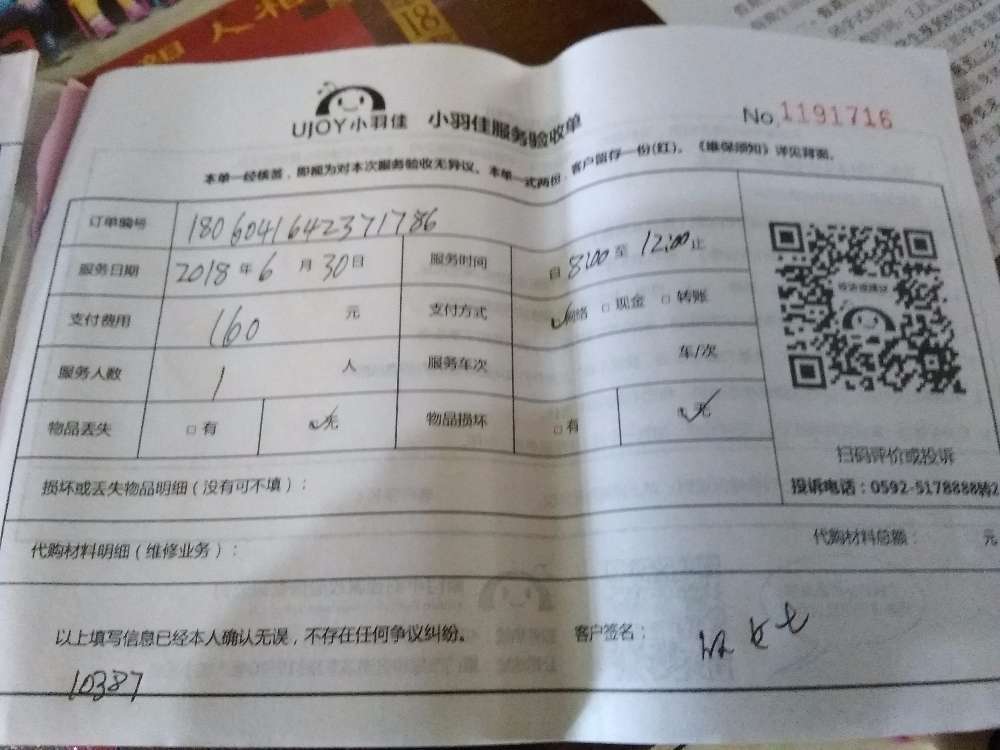 UJOY小羽佳 小羽佳服务验收单 No.1191716
本单一经核签，即视为对本次服务验收无异议。本单一式两份，客户留存一份(红)。《维保须知》详见背面。
订单编号 1806041642371786
服务日期 2018年6月30日 服务时间 自8:00至12:00止
支付费用 160元 支付方式 ✓网络 □现金 □转账
服务人数 1人 服务车次 车/次
物品丢失 □有 ✓无 物品损坏 □有 ✓无
扫码评价或投诉
损坏或丢失物品明细（没有可不填）：
投诉电话：0592-5178888转2
代购材料明细（维修业务）： 代购材料总额： 元
以上填写信息已经本人确认无误，不存在任何争议纠纷。 客户签名：
10387